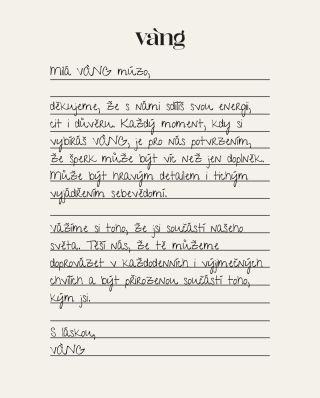 vàng
Milá VÀNG múzo,
děkujeme, že s námi sdílíš svou energii,
cit i důvěru. Každý moment, kdy si
vybíráš VÀNG, je pro nás potvrzením,
že šperk může být víc než jen doplněk.
Může být hravým detailem i tichým
vyjádřením sebevědomí.
Vážíme si toho, že jsi součástí našeho
světa. Těší nás, že tě můžeme
doprovázet v každodenních i výjimečných
chvílích a být přirozenou součástí toho,
kým jsi.
S láskou,
VÀNG